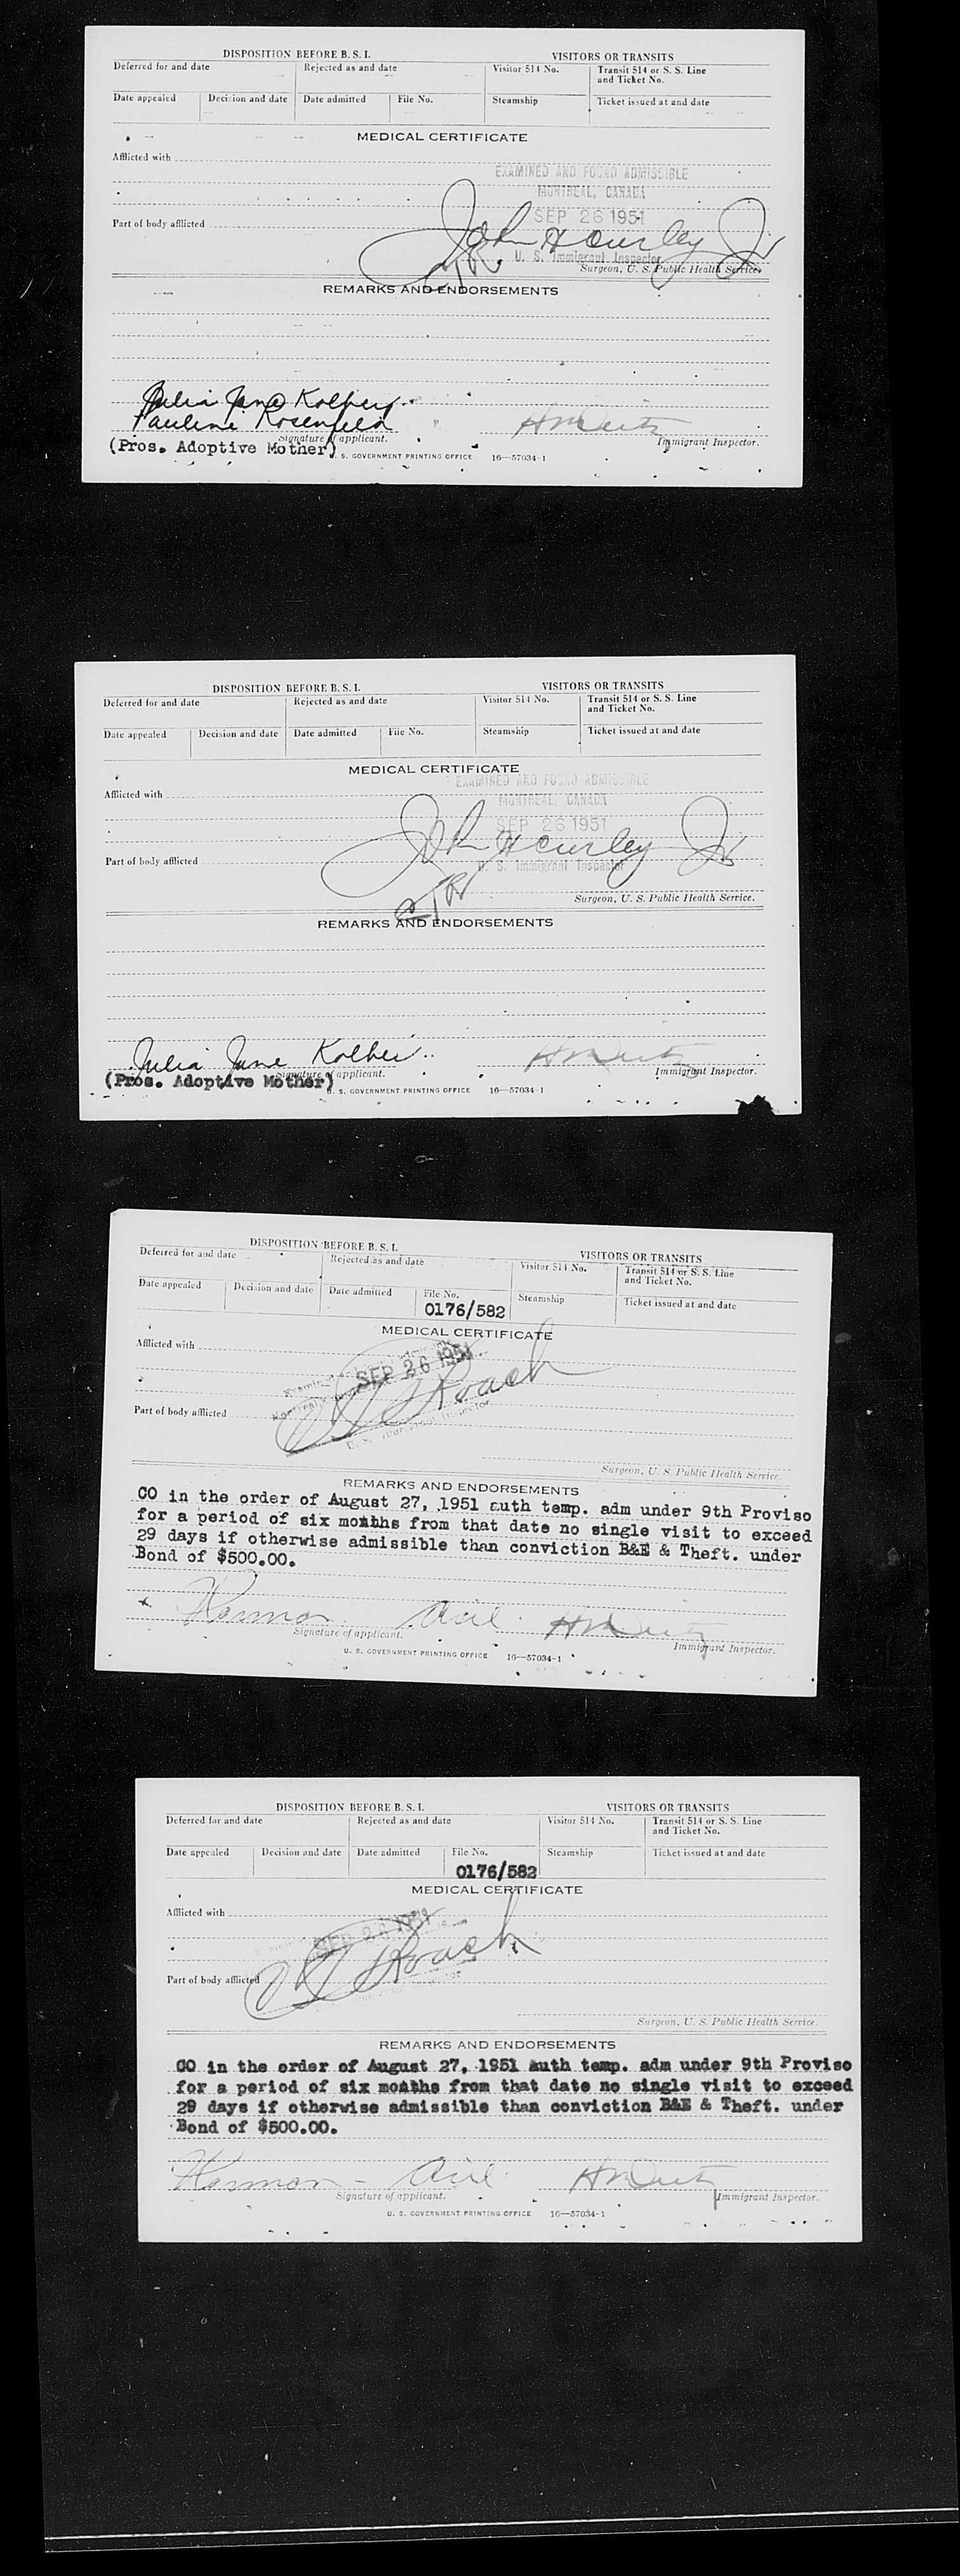 DISPOSITION BEFORE B. S. I. VISITORS OR TRANSITS
Deferred for and date Rejected as and date Visitor 514 No. Transit 514 or S. S. Line and Ticket No.
Date appealed Decision and date Date admitted File No. Steamship Ticket issued at and date
MEDICAL CERTIFICATE
Afflicted with
EXAMINED AND FOUND ADMISSIBLE
MONTREAL, CANADA
SEP 26 1951
Part of body afflicted
John Hourley Jr
U. S. Immigrant Inspector
Surgeon, U. S. Public Health Service.
REMARKS AND ENDORSEMENTS
Julia Jane Kolberg
Pauline Rosenfeld
Signature of applicant.
(Pros. Adoptive Mother) Immigrant Inspector.
U. S. GOVERNMENT PRINTING OFFICE 16—57034-1
DISPOSITION BEFORE B. S. I. VISITORS OR TRANSITS
Deferred for and date Rejected as and date Visitor 514 No. Transit 514 or S. S. Line and Ticket No.
Date appealed Decision and date Date admitted File No. Steamship Ticket issued at and date
MEDICAL CERTIFICATE
EXAMINED AND FOUND ADMISSIBLE
Afflicted with
MONTREAL, CANADA
SEP 26 1951
John Hourley Jr
Part of body afflicted
U. S. Immigrant Inspector
Surgeon, U. S. Public Health Service.
REMARKS AND ENDORSEMENTS
Julia Jane
Signature of applicant. Immigrant Inspector.
(Pros. Adoptive Mother)
U. S. GOVERNMENT PRINTING OFFICE 16—57034-1
DISPOSITION BEFORE B. S. I. VISITORS OR TRANSITS
Deferred for and date Rejected as and date Visitor 514 No. Transit 514 or S. S. Line and Ticket No.
Date appealed Decision and date Date admitted File No. Steamship Ticket issued at and date
0176/582
MEDICAL CERTIFICATE
Afflicted with
SEP 26 1951
Roach
Part of body afflicted
U. S. Immigrant Inspector
Surgeon, U. S. Public Health Service.
REMARKS AND ENDORSEMENTS
CO in the order of August 27, 1951 auth temp. adm under 9th Proviso
for a period of six months from that date no single visit to exceed
29 days if otherwise admissible than conviction B&E & Theft. under
Bond of $500.00.
Signature of applicant. Immigrant Inspector.
U. S. GOVERNMENT PRINTING OFFICE 16—57034-1
DISPOSITION BEFORE B. S. I. VISITORS OR TRANSITS
Deferred for and date Rejected as and date Visitor 514 No. Transit 514 or S. S. Line and Ticket No.
Date appealed Decision and date Date admitted File No. Steamship Ticket issued at and date
0176/582
MEDICAL CERTIFICATE
Afflicted with
SEP 26 1951
Roach
Part of body afflicted
Surgeon, U. S. Public Health Service.
REMARKS AND ENDORSEMENTS
CO in the order of August 27, 1951 auth temp. adm under 9th Proviso
for a period of six months from that date no single visit to exceed
29 days if otherwise admissible than conviction B&E & Theft. under
Bond of $500.00.
Signature of applicant. Immigrant Inspector.
U. S. GOVERNMENT PRINTING OFFICE 16—57034-1